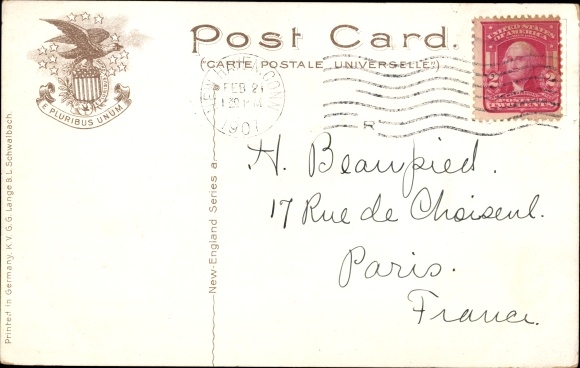 Post Card.
("CARTE POSTALE UNIVERSELLE")
E PLURIBUS UNUM
UNITED STATES
OF AMERICA
2 2
POSTAGE
TWO CENTS
CONN.
FEB 21
190
R
H. Beaupied.
17 Rue de Choiseul.
Paris.
France.
New-England Series a.
Printed in Germany. K.V.G.G. Lange B.L. Schwalbach.